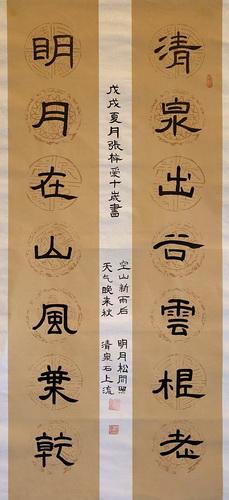 清泉出谷雲根老
戊戌夏月張梓愛十歲書
空山新雨后
天气晚来秋
明月松間照
清泉石上流
明月在山風葉乾